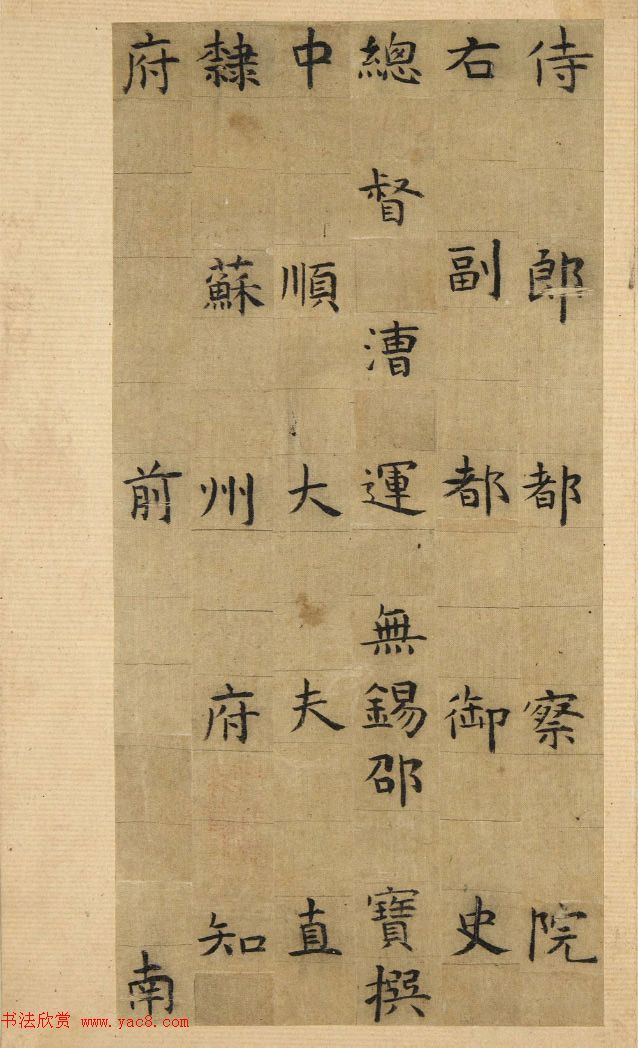 侍郎都察院
右副都御史
總督漕運無錫邵寶撰
中順大夫直
隸蘇州府知
府前南
书法欣赏 www.yac8.com